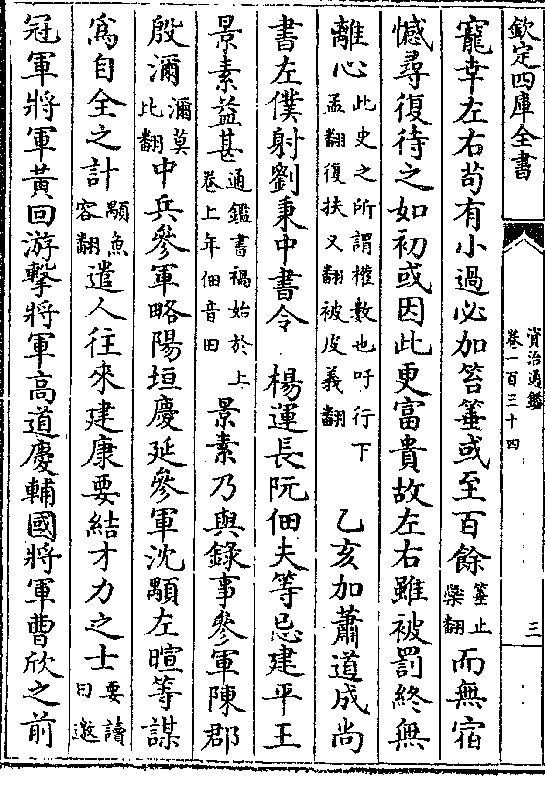 欽定四庫全書
資治通鑑
卷一百三十四
三
寵幸左右苟有小過必加笞箠或至百餘箠止橤翻而無宿
憾尋復待之如初或因此更富貴故左右雖被罰終無
離心此史之所謂權數也吁行下孟翻復扶又翻被皮義翻 乙亥加蕭道成尚
書左僕射劉秉中書令 楊運長阮佃夫等忌建平王
景素益甚通鑑書禍始於上卷上年佃音田 景素乃與錄事參軍陳郡
殷瀰瀰莫比翻中兵參軍略陽垣慶延參軍沈顒左暄等謀
為自全之計顒魚容翻遣人往來建康要結才力之士要讀曰邀
冠軍將軍黃回游擊將軍高道慶輔國將軍曹欣之前